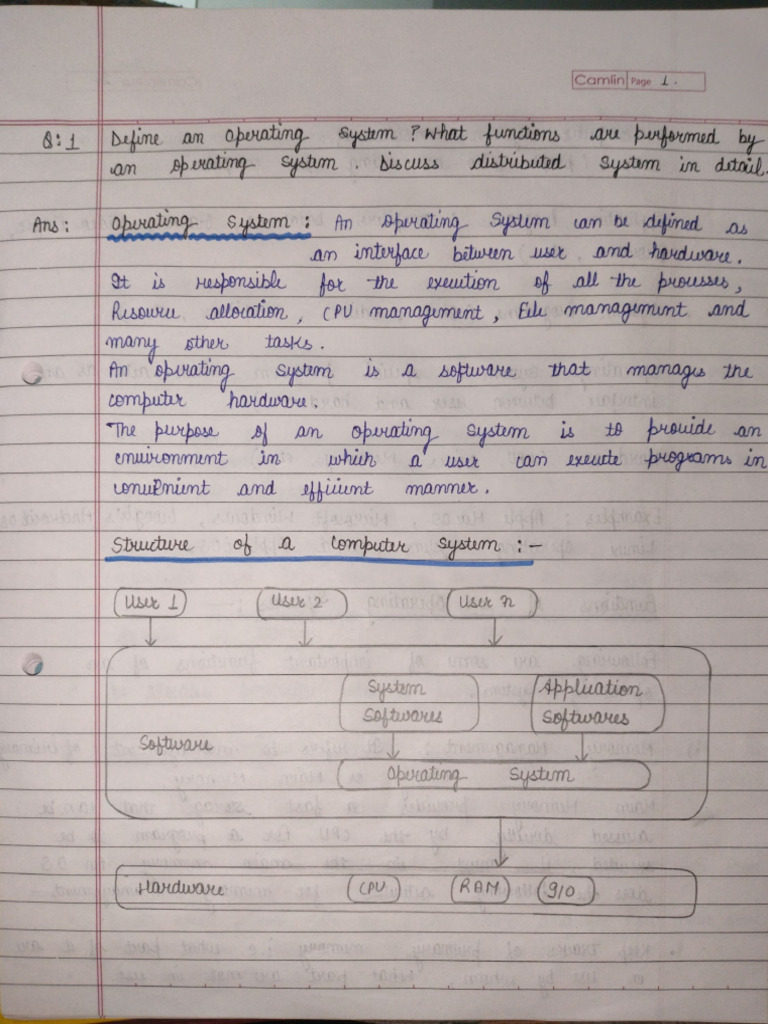 Camlin Page 1.
Q:1 Define an operating system? What functions are performed by
an operating system. Discuss distributed system in detail.
Ans: Operating System: An operating System can be defined as
an interface between user and hardware.
It is responsible for the execution of all the processes,
Resource allocation, CPU management, File management and
many other tasks.
An operating system is a software that manages the
computer hardware.
The purpose of an operating system is to provide an
environment in which a user can execute programs in
convenient and efficient manner.
Structure of a computer system :-
User 1 User 2 User n
System Application
Softwares Softwares
Software
Operating System
Hardware CPU RAM I/O